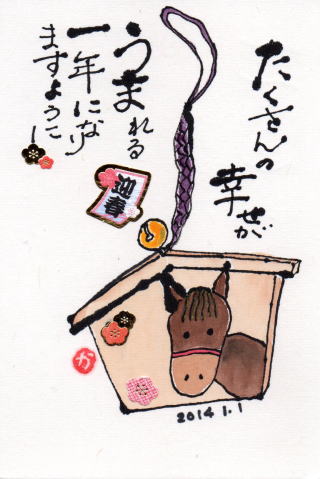 たくさんの
幸せが
うまれる
一年になり
ますように
迎春
か
2014 1.1